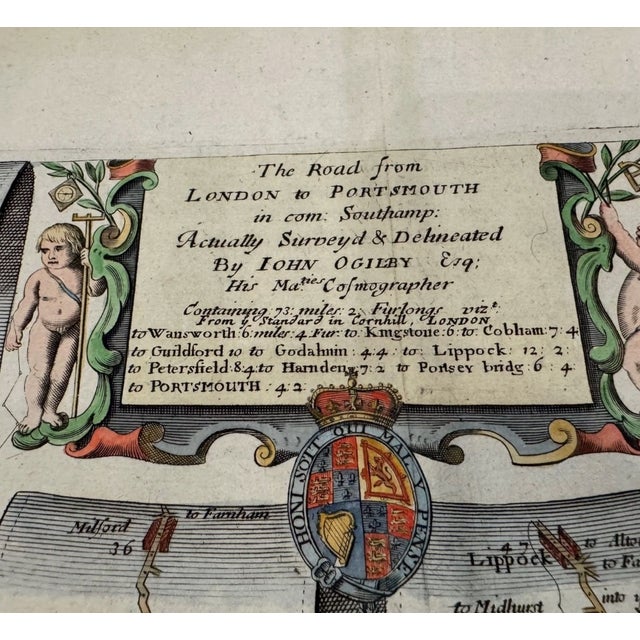 The Road from
LONDON to PORTSMOUTH
in com: Southamp:
Actually Survey'd & Delineated
By IOHN OGILBY Esq;
His Ma:ties Cosmographer
Containing 73: miles: 2: Furlongs vizt:
From ye Standard in Cornhill, LONDON
to Wansworth: 6: miles: 4 Fur: to: Kingstone: 6: to: Cobham: 7: 4
to Guildford 10 to Godalmin: 4: 4: to: Lippock: 12: 2:
to Petersfield: 8: 4: to Harnden: 7: 2 to Portsey bridg: 6: 4
to PORTSMOUTH: 4: 2:
HONI SOIT QUI MAL Y PENSE
Milford
to Farnham
36
47
Lippock
to Alto
to Fa
into y
to Midhurst